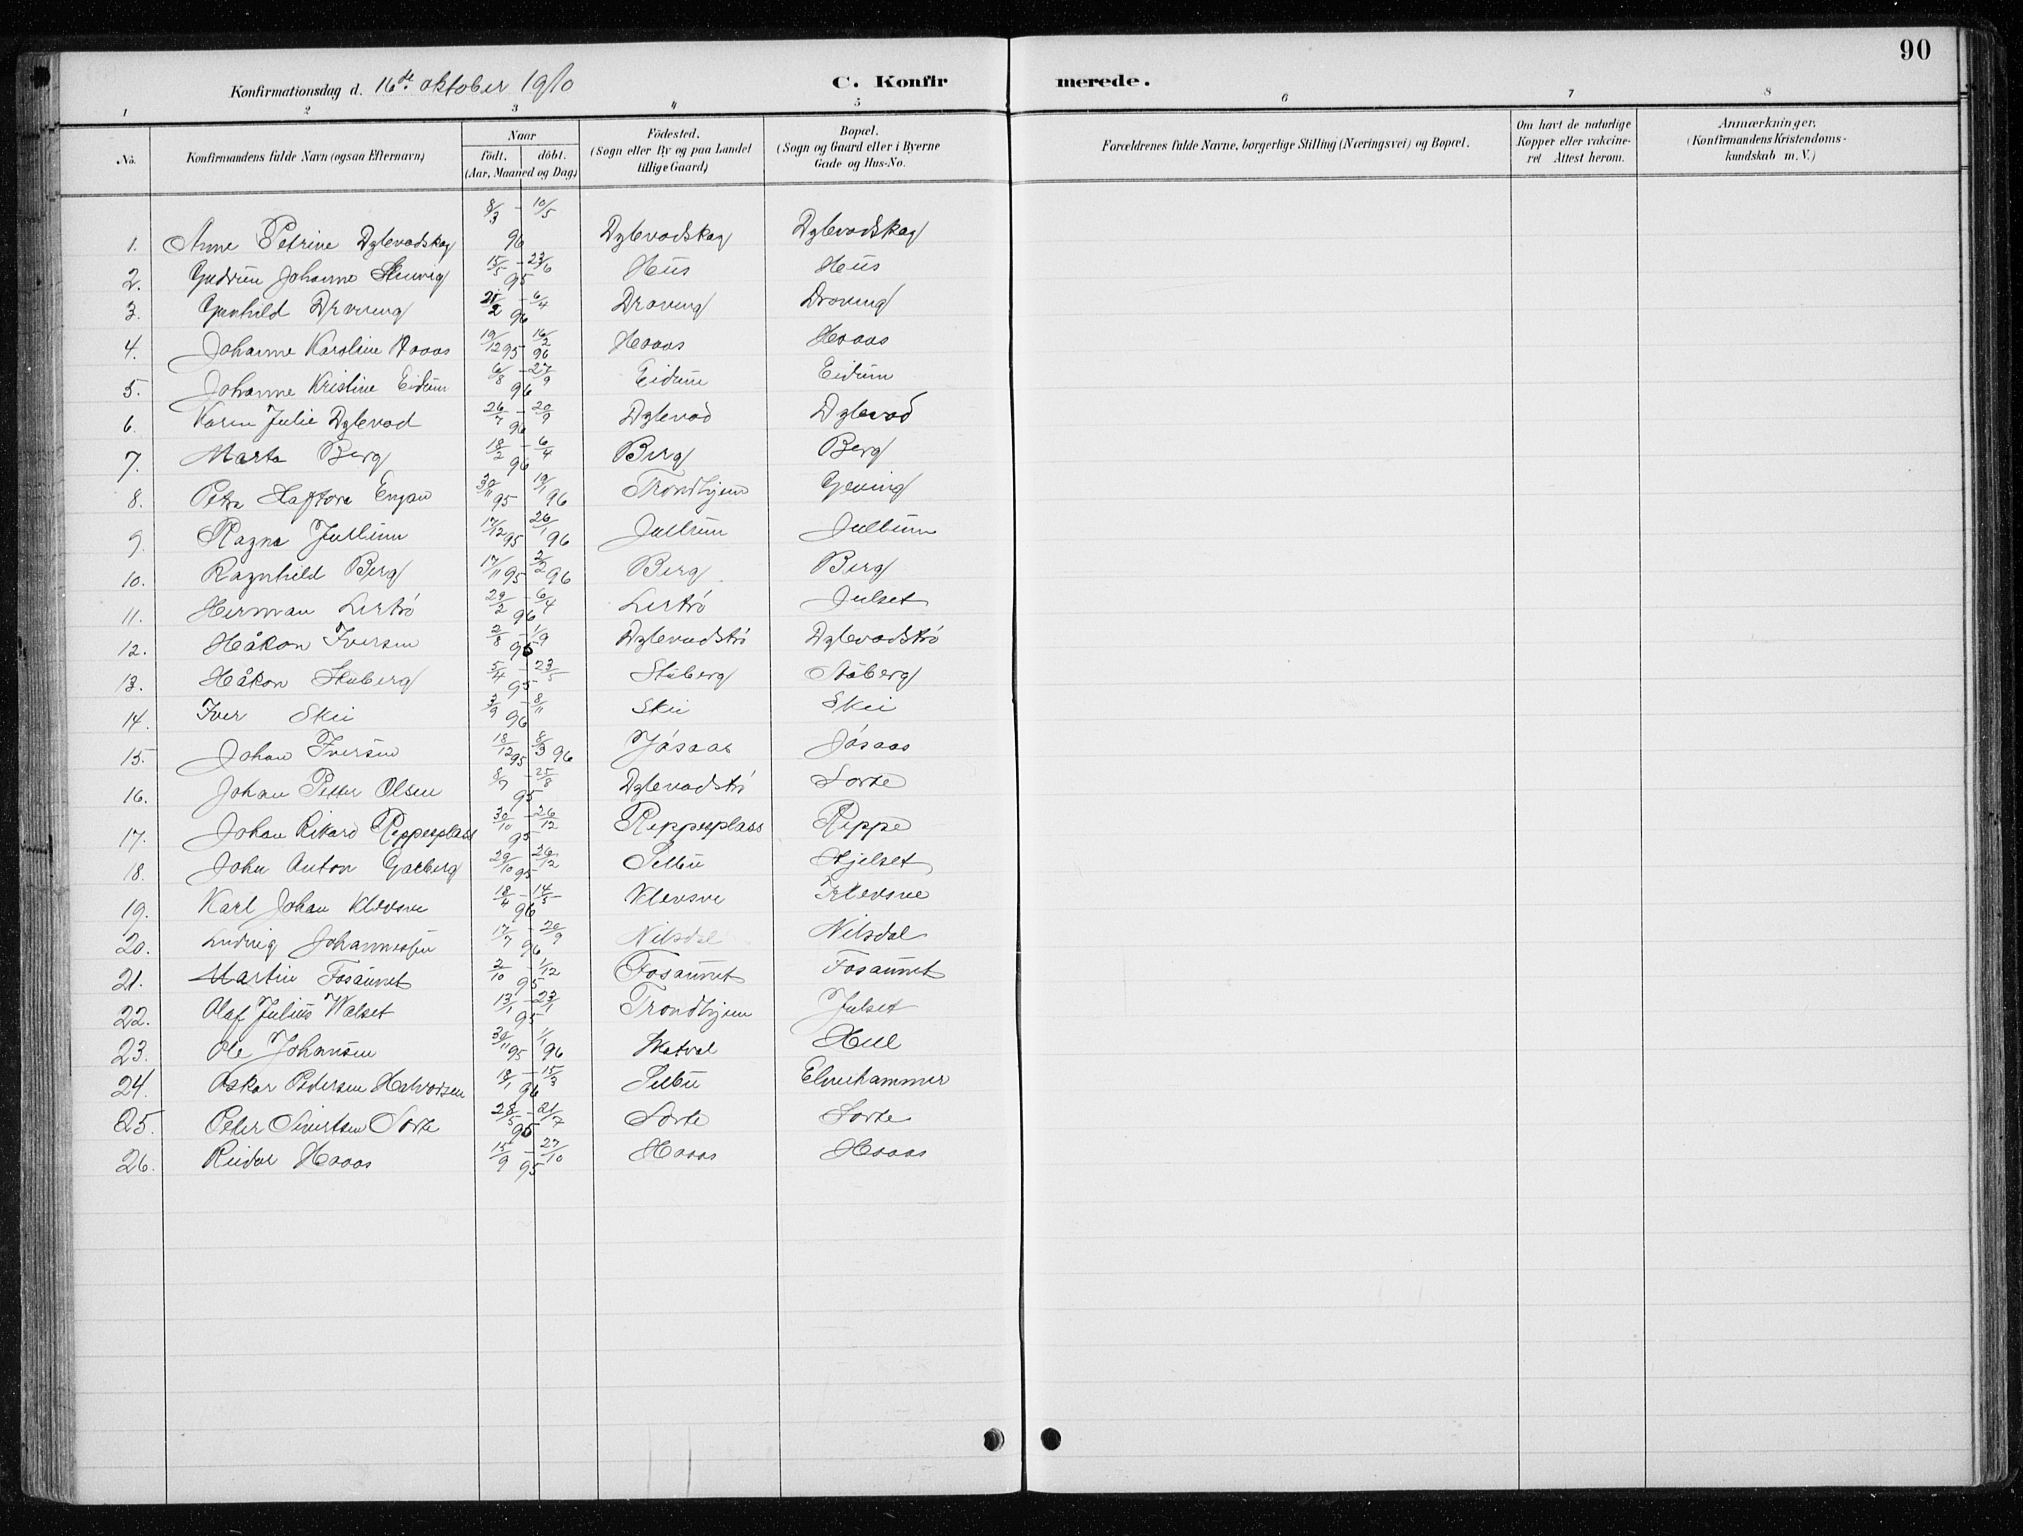 90
Konfirmationsdag d. 16de oktober 1910
C. Konfirmerede.
1 2 3 4 5 6 7 8
No. Konfirmandens fulde Navn (ogsaa Efternavn) Naar födt. döbt. (Aar, Maaned og Dag) Födested. (Sogn eller By og paa Landet tillige Gaard) Bopæl. (Sogn og Gaard eller i Byerne Gade og Hus-No. Forældrenes fulde Navne, borgerlige Stilling (Næringsvei) og Bopæl. Om havt de naturlige Kopper eller vakcineret Attest herom. Anmærkninger. (Konfirmandens Kristendomskundskab m. V.)
1. Anne Petrine Dylevadskag 8/3 - 10/5 96 Dylevadskag Dylevadskag
2. Gudrun Johanne 15/5 - 23/6 95 Hüs Hüs
3. Gunhild Draveng 25/2 - 6/4 96 Draveng Draveng
4. Johanne Karoline Haaas 19/12 95 16/2 96 Haaas Haaas
5. Johanne Kristine Eidum 6/8 - 27/9 96 Eidum Eidum
6. Karen Julie Dylevad 26/7 - 20/9 96 Dylevad Dylevad
7. Marta Berg 18/2 - 6/4 96 Berg Berg
8. Petra Haftora Engan 30/11 95 19/1 96 Trondhjem Geving
9. Ragna Jullum 17/12 95 26/1 96 Jullum Jullum
10. Ragnhild Berg 17/11 95 2/2 96 Berg Berg
11. Herman Lertrö 29/2 - 6/4 96 Lertrö Julset
12. Håkon Iversen 2/8 - 1/9 95 Dylevadströ Dylevadströ
13. Håkon Stuberg 5/4 - 23/5 95 Stuberg Stuberg
14. Iver Skei 3/9 - 8/11 96 Skei Skei
15. Johan Iversen 18/12 95 8/3 96 Jösaas Jösaas
16. Johan Petter Olsen 8/7 - 25/8 95 Dylevadströ Sorte
17. Johan Rikard Reppesplass 30/10 - 26/12 95 Reppesplass Reppe
18. John Anton Garberg 29/10 - 26/12 95 Selbu Hjelset
19. Karl Johan Klevsve 18/4 - 14/5 96 Klevsve Klevsve
20. Ludvig Johannessen 17/7 - 20/9 96 Nilsdal Nilsdal
21. Martin Fosaunet 2/10 - 1/12 95 Fosaunet Fosaunet
22. Olaf Julius Walset 13/1 - 23/1 95 Trondhjem Julset
23. Ole Johansen 30/11 95 1/1 96 Skatval Hell
24. Oskar Pedersen Halvorsen 18/1 - 15/3 96 Selbu Elvehammer
25. Peter Sivertsen Sorte 28/5 - 21/7 95 Sorte Sorte
26. Reidar Haaas 15/9 - 27/10 95 Haaas Haaas